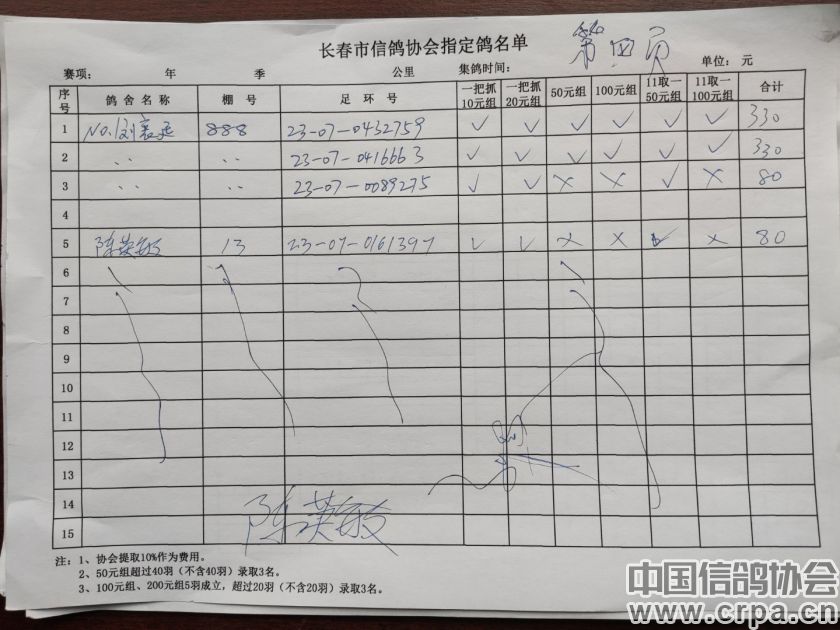 长春市信鸽协会指定鸽名单 第四页
赛项： 年 季 公里 集鸽时间： 单位：元
序号 鸽舍名称 棚号 足环号 一把抓10元组 一把抓20元组 50元组 100元组 11取一50元组 11取一100元组 合计
1 No.1 888 23-07-0432759 ✓ ✓ ✓ ✓ ✓ ✓ 330
2 〃 〃 23-07-0416663 ✓ ✓ ✓ ✓ ✓ ✓ 330
3 〃 〃 23-07-0089275 ✓ ✓ × × ✓ × 80
4
5 陈英敏 13 23-07-0161397 ✓ ✓ × × ✓ × 80
6
7
8
9
10
11
12
13
14
15
陈英敏
注：1、协会提取10%作为费用。
2、50元组超过40羽（不含40羽）录取3名。
3、100元组、200元组5羽成立，超过20羽（不含20羽）录取3名。
中国信鸽协会
www.crpa.cn